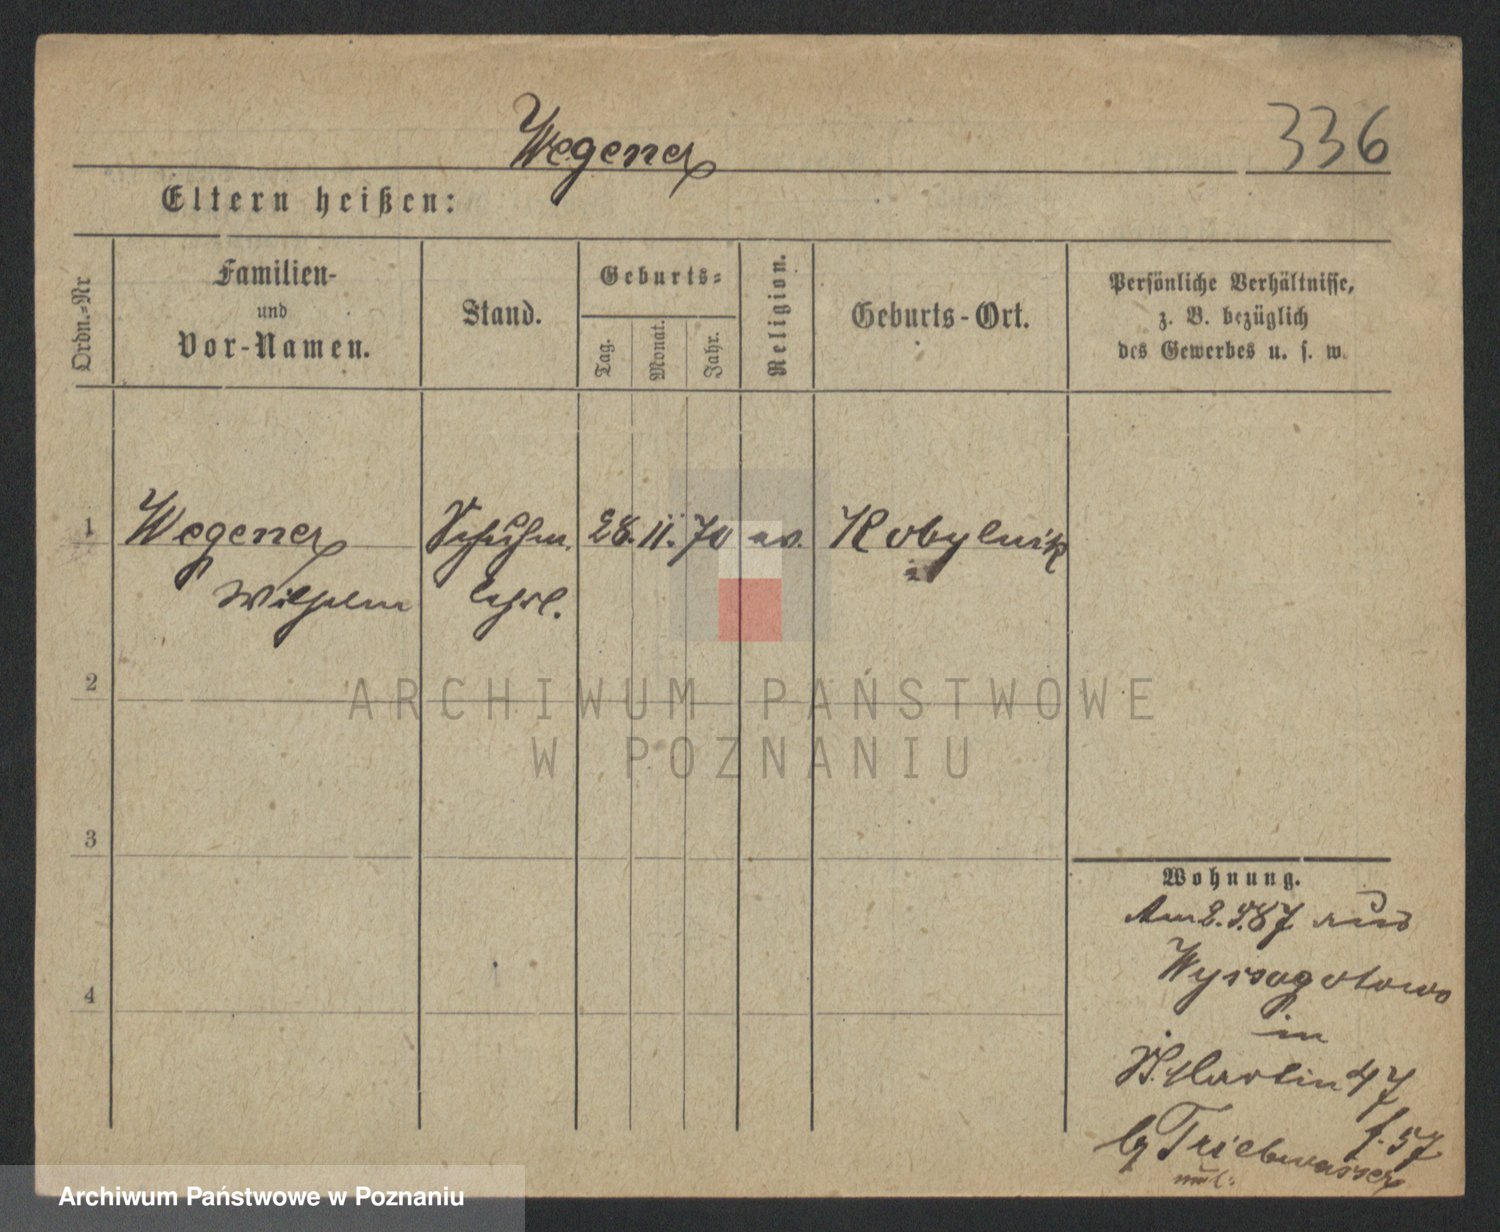 336
Wegener
Eltern heißen:
Ordn.-Nr
Familien-
und
Vor-Namen.
Stand.
Geburts-
Tag.
Monat.
Jahr.
Religion.
Geburts-Ort.
Persönliche Verhältnisse,
z. B. bezüglich
des Gewerbes u. s. w.
1
Wegener Schuhm. 28. 11. 70 ev. Kobylnik
Wilhelm lehrl.
2
ARCHIWUM PAŃSTWOWE
W POZNANIU
3
Wohnung.
Am 2. 5. 87 aus
Wyssogotowo
in
St. Martin 47
f. 57
by Triebwasser
Archiwum Państwowe w Poznaniu